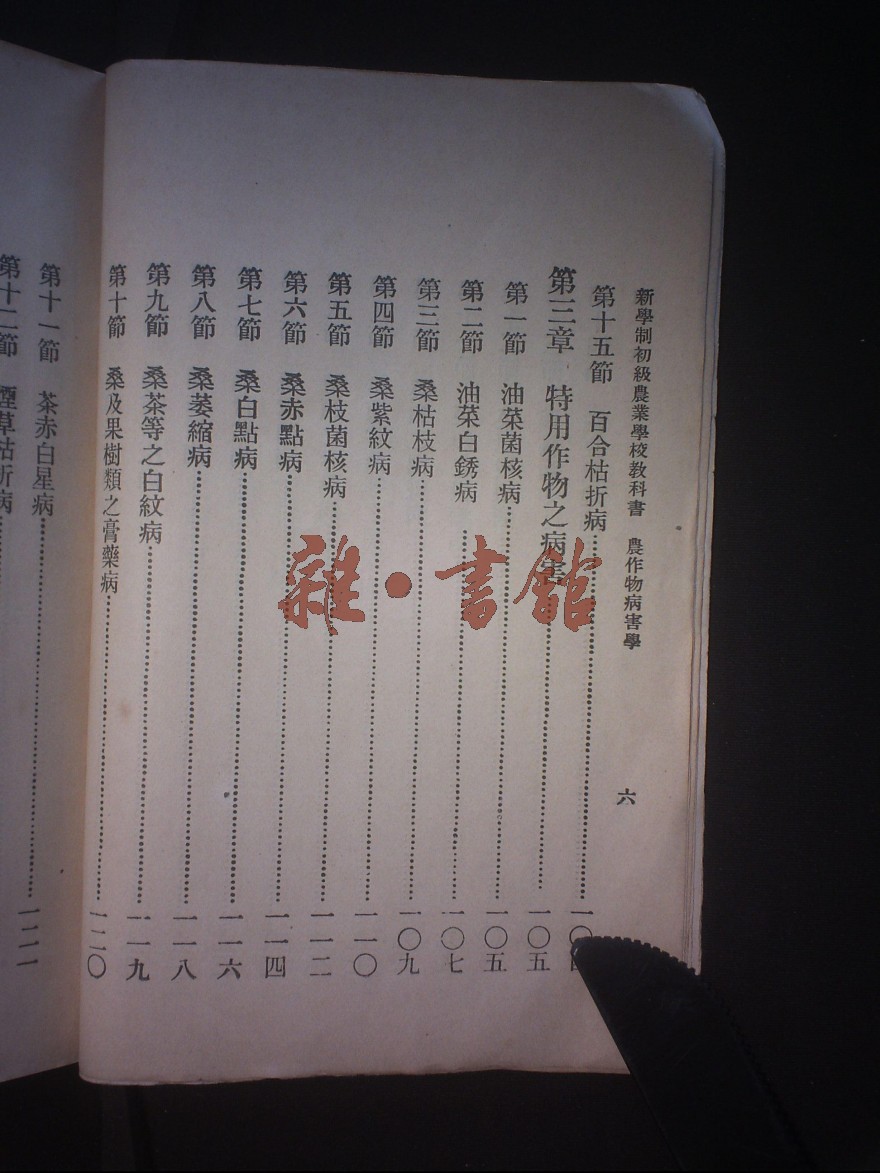 新學制初級農業學校教科書 農作物病害學 六
第十五節 百合枯折病 一〇四
第三章 特用作物之病害 一〇五
第一節 油菜菌核病 一〇五
第二節 油菜白銹病 一〇七
第三節 桑枯枝病 一〇九
第四節 桑紫紋病 一一〇
第五節 桑枝菌核病 一一二
第六節 桑赤點病 一一四
第七節 桑白點病 一一六
第八節 桑萎縮病 一一八
第九節 桑茶等之白紋病 一一九
第十節 桑及果樹類之膏藥病 一二〇
第十一節 茶赤白星病 一二一
第十二節 煙草枯折病
雜·書館